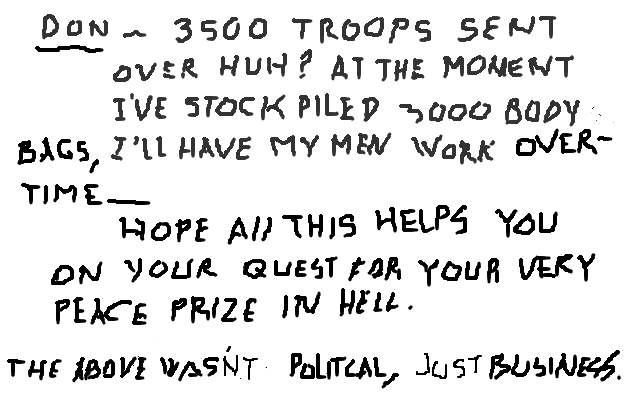 DON ~ 3500 TROOPS SENT
OVER HUH? AT THE MOMENT
I'VE STOCK PILED 3000 BODY
BAGS, I'LL HAVE MY MEN WORK OVER-
TIME —
HOPE All THIS HELPS YOU
ON YOUR QUEST FOR YOUR VERY
PEACE PRIZE IN HELL.
THE ABOVE WASN'T POLITCAL, JUST BUSINESS.